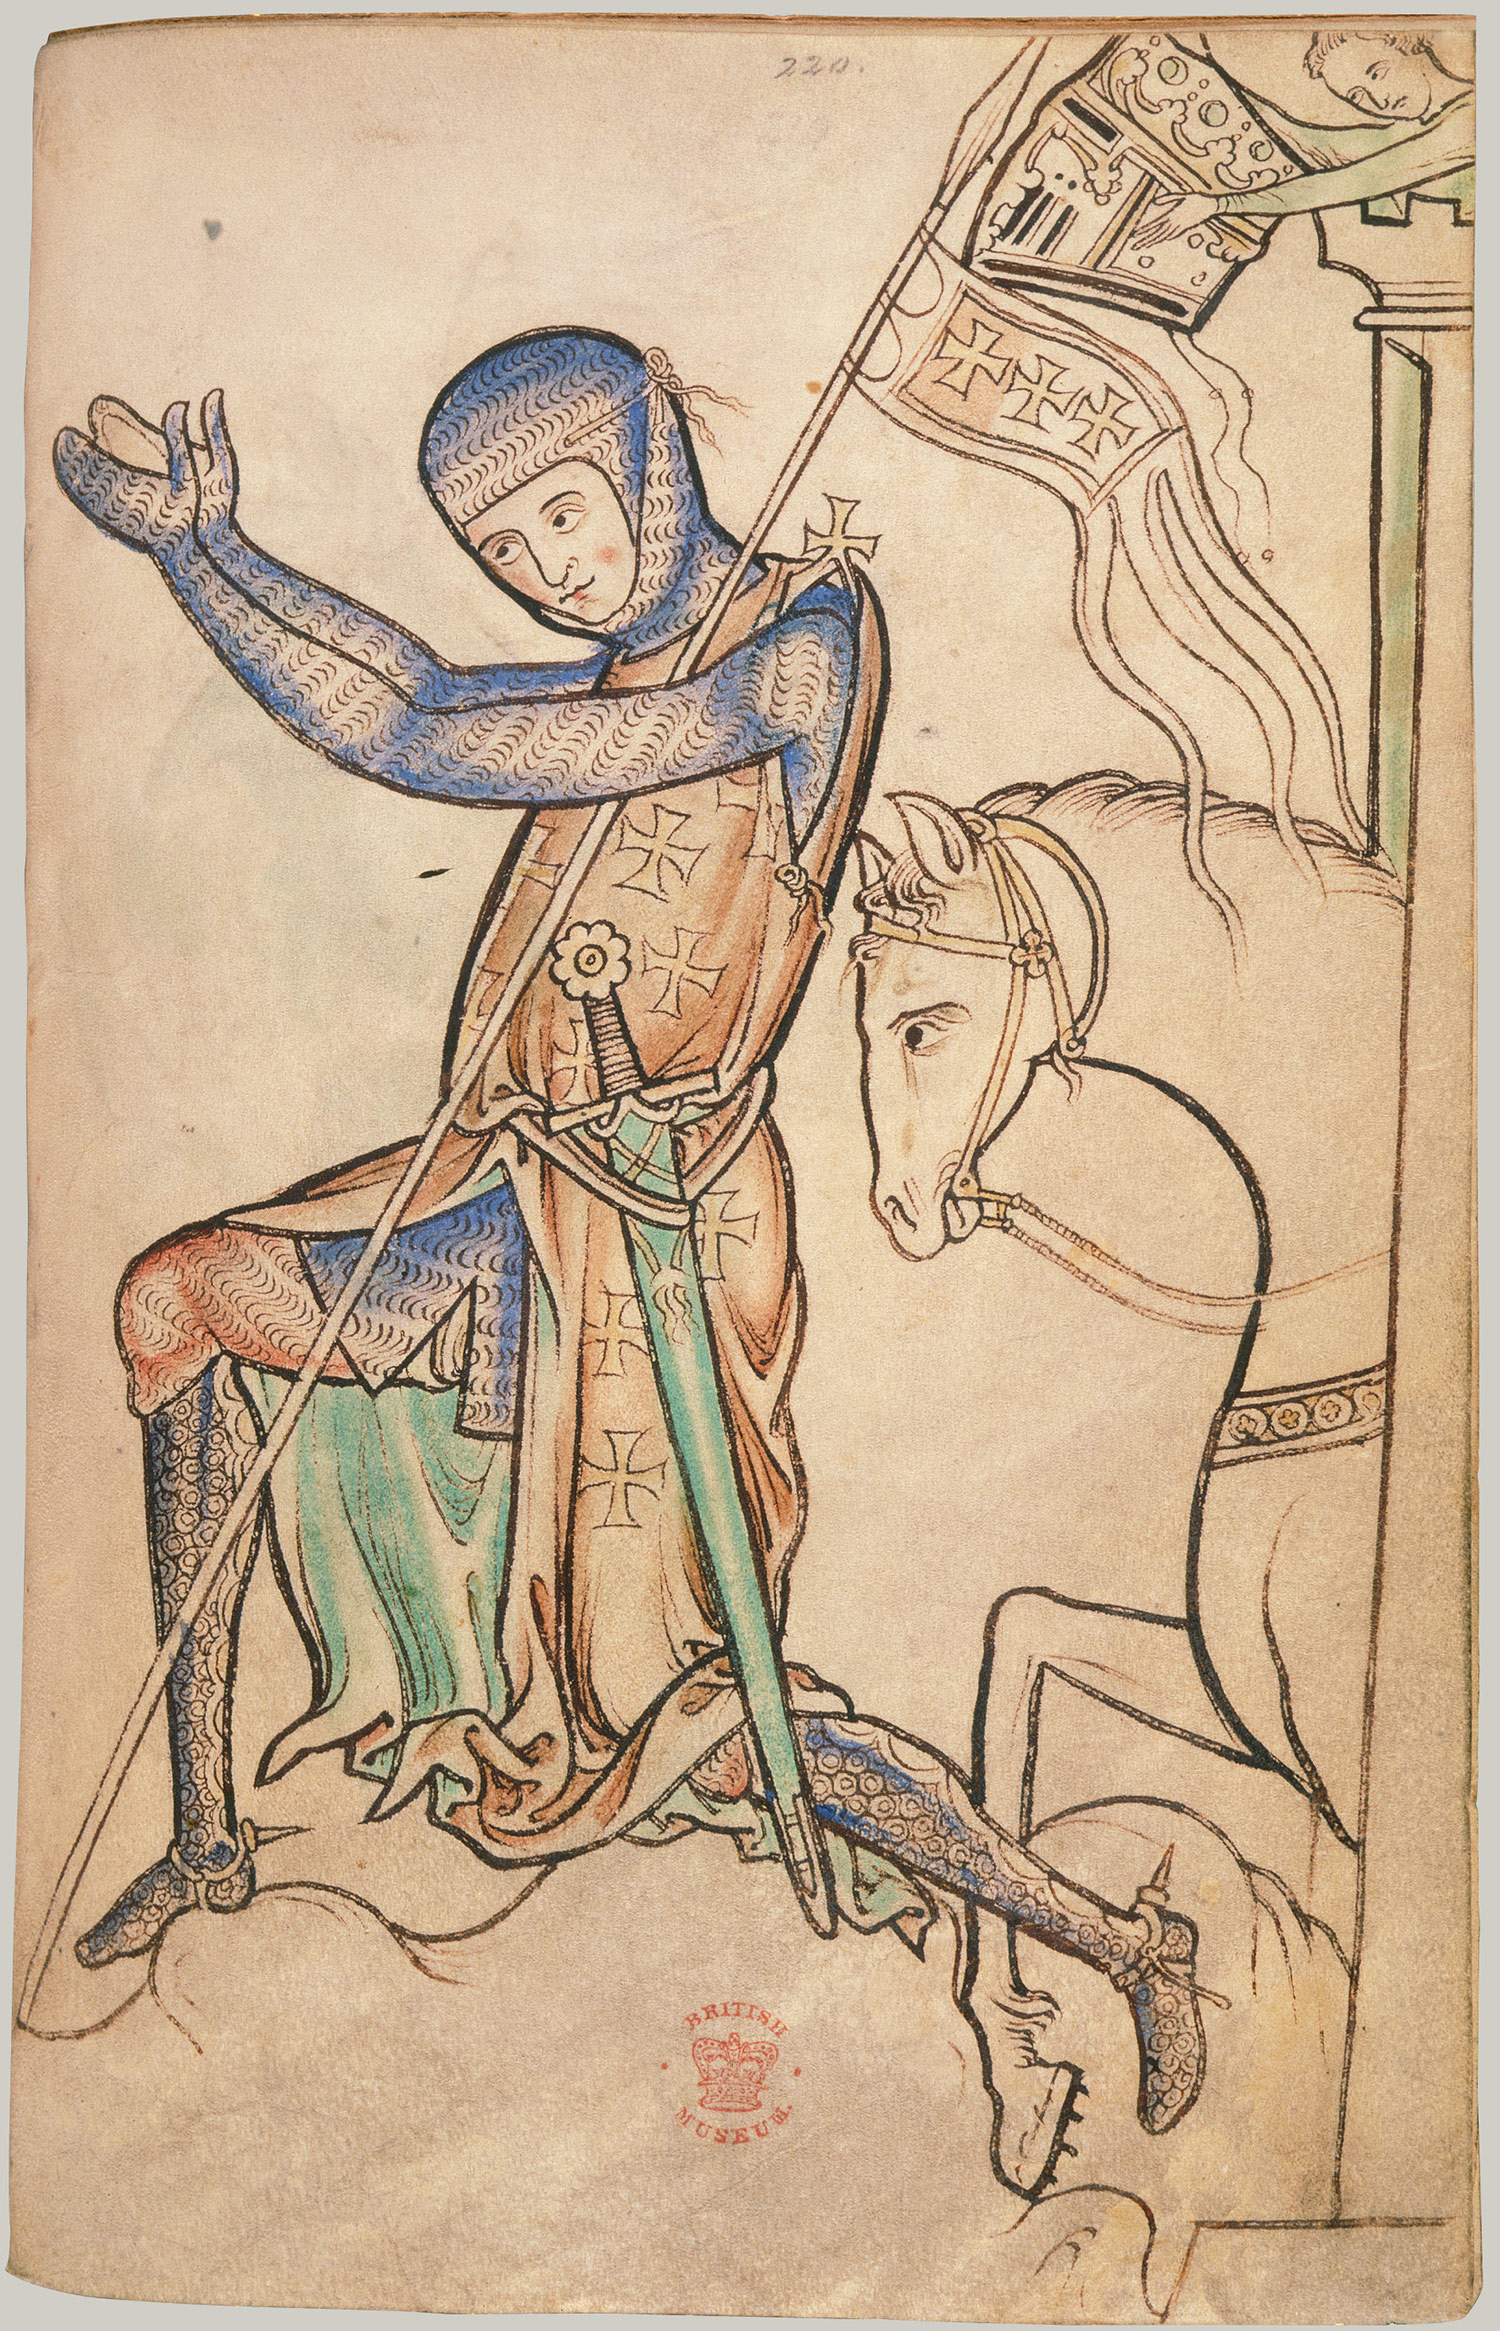 220.
BRITISH
MUSEUM.